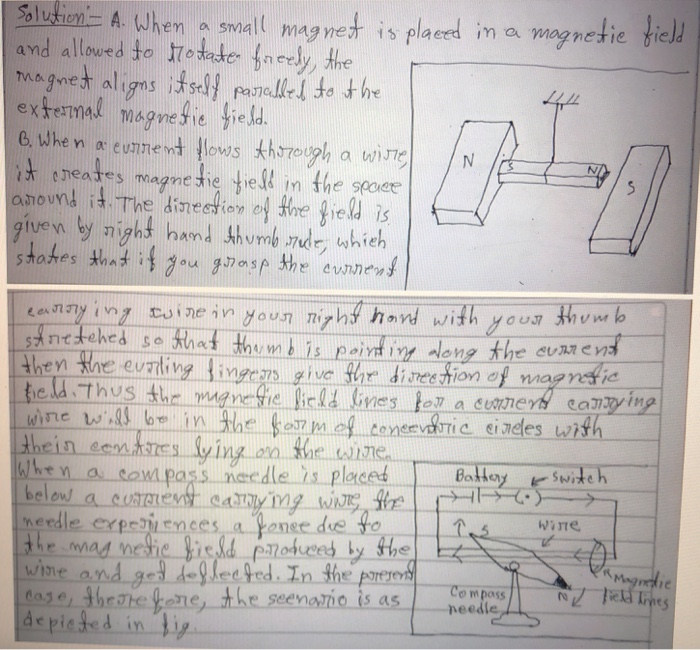 Solution:- A. When a small magnet is placed in a magnetic field
and allowed to rotate freely, the
magnet aligns itself parallel to the
external magnetic field.
B. When a current flows thorough a wire,
it creates magnetic field in the space
around it. The direction of the field is
given by right hand thumb rule, which
states that if you grasp the current
N
S
N
S
carrying wire in your right hand with your thumb
stretched so that thumb is pointing along the current
then the curling fingers give the direction of magnetic
field. Thus the magnetic field lines for a current carrying
wire will be in the form of concentric circles with
their centres lying on the wire.
When a compass needle is placed
below a current carrying wire, the
needle experiences a force due to
the magnetic field produced by the
wire and get deflected. In the present
case, therefore, the scenario is as
depicted in fig.
Battery
Switch
S
Wire
Magnetic
field lines
Compass
needle
N